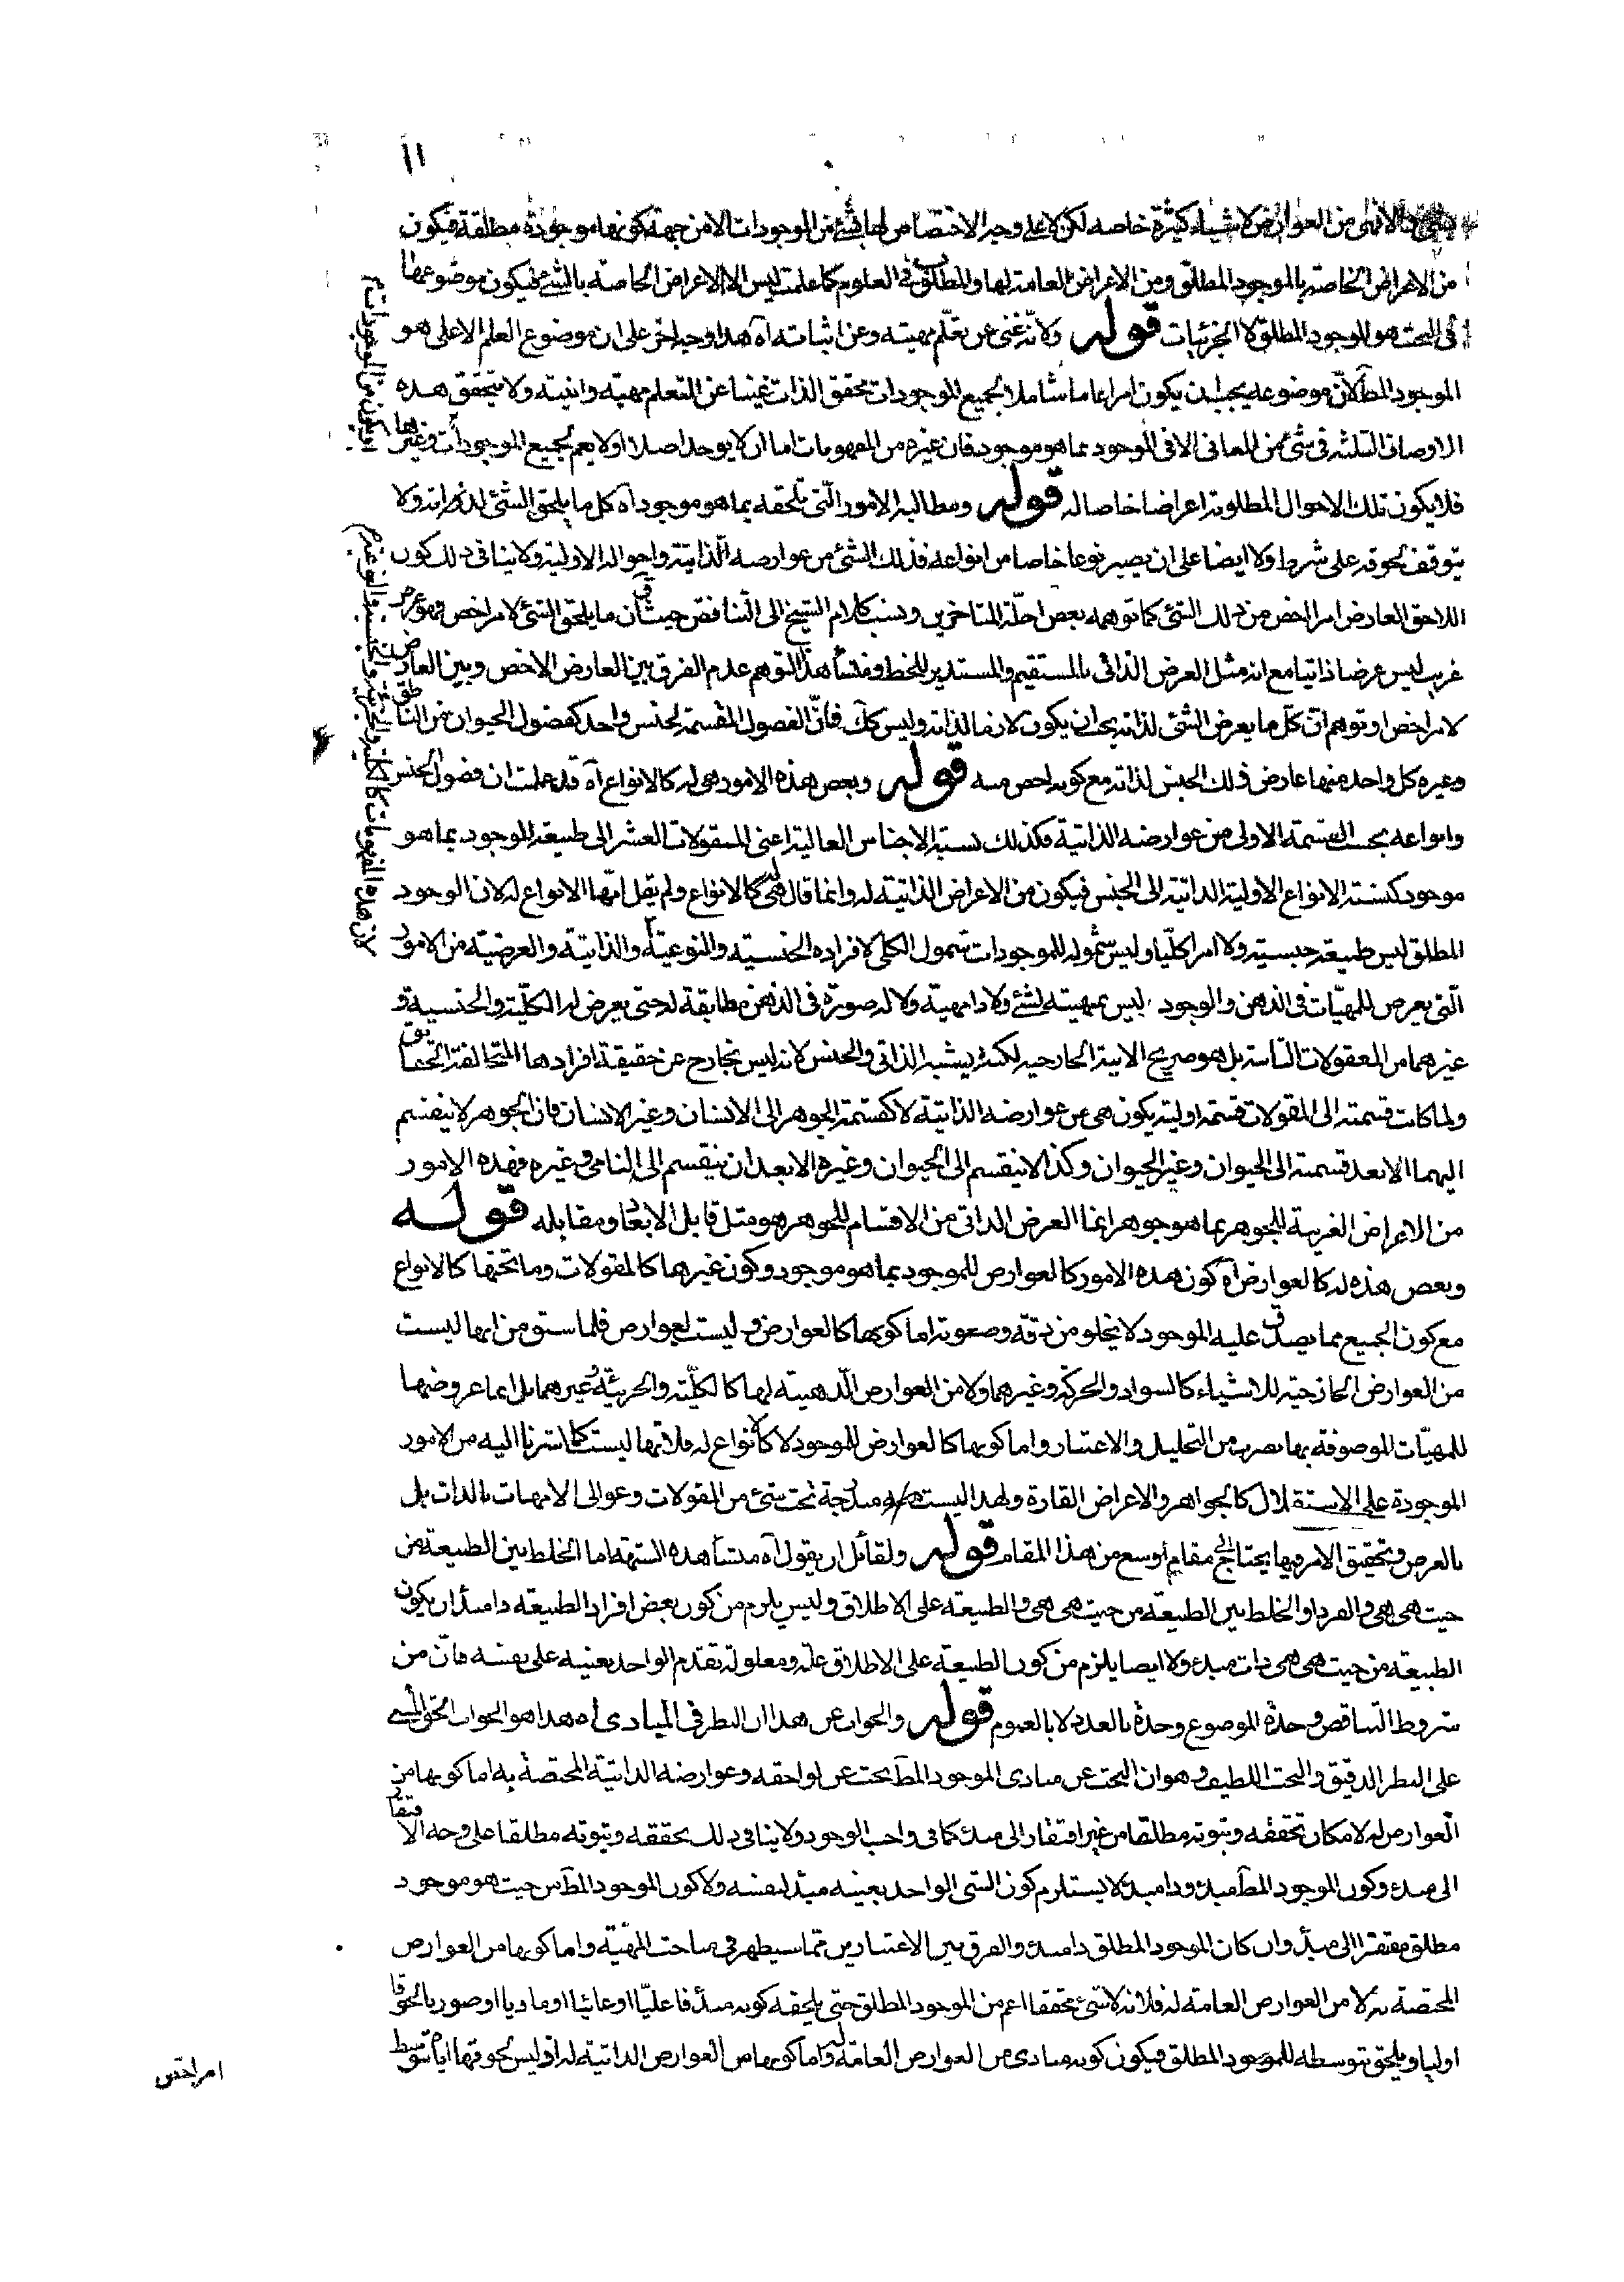 ١١
الا وهي من العوارض لاشياء كثيرة خاصه لكن لا على وجه الاختصاص لها بشئ من الموجودات الا من جهة كونها موجودة مطلقة فيكون
من الاعراض الخاصة بالموجود المطلق ومن الاعراض العامة لها والمطلوب في العلوم كما علمت ليس الا الاعراض الخاصة بالشئ فيكون موضوعها
في البحث هو الموجود المطلق لا الجزئيات قوله ولانه غنى عن تعلم مهيته وعن اثباته آه هذا وجه اخر على ان موضوع العلم الاعلى هو
الموجود المط لان موضوعه يجب ان يكون امرا عاما شاملا لجميع الموجودات محقق الذات غنيا عن التعلم مهية وانيته ولا يتحقق هذه
الاوصاف الثلثة في شئ من المعاني الا في الموجود بما هو موجود فان غيره من المفهومات اما ان لا يوجد اصلا او لا يعم لجميع الموجودات وغيرها
فلا يكون تلك الاحوال المطلوبة اعراضا خاصا له قوله ومطالبه الامور التى تلحقه بما هو موجود آه كل ما يلحق الشئ لذاته ولا
يتوقف لحوقه على شرط ولا ايضا على ان يصير نوعا خاصا من انواعه فذلك الشئ من عوارضه الذاتية واحواله الاولية ولا ينافى ذلك كون
اللاحق العارض امرا اخص من ذلك الشئ كما توهمه بعض اجلة المتاخرين ونسب كلام الشيخ الى التناقض حيث قال ان ما يلحق الشئ لامر اخص فهو عرض
غريب ليس عرضا ذاتيا مع انه مثل العرض الذاتى بالمستقيم والمستدير للخط ومنشأ هذا التوهم عدم الفرق بين العارض الاخص وبين العارض
لامر اخص او توهم ان كل ما يعرض الشئ لذاته يجب ان يكون لازما لذاته وليس كك فان الفصول المقسمة لجنس واحد كفصول الحيوان من الناطق
وغيره كل واحد منها عارض ذلك الجنس لذاته مع كونه اخص منه قوله وبعض هذه الامور هى له كالانواع آه قد علمت ان فصول الجنس
وانواعه بحسب القسمة الاولى من عوارضه الذاتية فكذلك نسبة الاجناس العالية اعنى المقولات العشر الى طبيعة الموجود بما هو
موجود كنسبة الانواع الاولية الذاتية الى الجنس فيكون من الاعراض الذاتية له وانما قال هى له كالانواع ولم يقل انها الانواع له لان الوجود
المطلق ليس طبيعة جنسية ولا امرا كليا وليس شموله للموجودات شمول الكلى لافراده الجنسية والنوعية والذاتية والعرضية من الامور
التى يعرض للمهيات في الذهن والوجود ليس بمهية لشئ ولا ذا مهية ولا له صورة في الذهن مطابقة له حتى يعرض له الكلية والجنسية و
غيرهما من المعقولات الثانية بل هو صريح الانية الخارجية لكنه يشبه الذاتى والجنس لانه ليس بخارج عن حقيقة افرادها المتخالفة الحقايق
ولما كانت قسمته الى المقولات قسمة اولية يكون هى من عوارضه الذاتية لا كقسمة الجوهر الى الانسان وغير الانسان فان الجوهر لا ينقسم
اليهما الا بعد قسمته الى الحيوان وغير الحيوان وكذا لا ينقسم الى الحيوان وغيره الا بعد ان ينقسم الى النامى وغيره فهذه الامور
من الاعراض الغريبة للجوهر بما هو جوهر انما العرض الذاتى من الاقسام للجوهر هو مثل قابل الابعاد ومقابله قوله
وبعض هذه له كالعوارض آه كون هذه الامور كالعوارض للموجود بما هو موجود وكون غيرها كالمقولات وما تحتها كالانواع
مع كون الجميع مما يصدق عليه الموجود لا يخلو من دقة وصعوبة اما كونها كالعوارض وليست بعوارض فلما سبق من انها ليست
من العوارض الخارجية للاشياء كالسواد والحركة وغيرهما ولا من العوارض الذهنية لها كالكلية والجزئية وغيرهما بل انما عروضها
للمهيات الموصوفة بها بضرب من التحليل والاعتبار واما كونها كالعوارض للموجود لا كالانواع له فلانها ليست كما اشرنا اليه من الامور
الموجودة على الاستقلال كالجواهر والاعراض القارة ولهذا ليست هى مندرجة تحت شئ من المقولات وعوالى الامهات بالذات بل
بالعرض وتحقيق الامر فيها يحتاج الى مقام اوسع من هذا المقام قوله ولقائل ان يقول آه منشأ هذه الشبهة اما الخلط بين الطبيعة من
حيث هى هى والفرد او الخلط بين الطبيعة من حيث هى هى والطبيعة على الاطلاق وليس يلزم من كون بعض افراد الطبيعة ذا مبدأ ان يكون
الطبيعة من حيث هى هى ذات مبدء ولا ايضا يلزم من كون الطبيعة على الاطلاق علة ومعلولة تقدم الواحد بعينه على نفسه فان من
شروط التناقض وحدة الموضوع وحدة بالعدد لا بالعموم قوله والجواب عن هذا ان النظر في المبادى آه هذا هو الجواب الحق المبنى
على النظر الدقيق والبحث اللطيف وهو ان البحث عن مبادى الموجود المط بحث عن لواحقه وعوارضه الذاتية المختصة به اما كونها من
العوارض له لامكان تحققه وثبوته مطلقا من غير افتقار الى مبدء كما في واجب الوجود ولا ينافى ذلك تحققه وثبوته مطلقا على وجه الافتقار
الى مبدء وكون الموجود المط مبدء وذا مبدء لا يستلزم كون الشئ الواحد بعينه مبدأ لنفسه ولا كون الموجود المط من حيث هو موجود
مطلق مفتقرا الى مبدأ وان كان الموجود المطلق ذا مبدء والفرق بين الاعتبارين مما سيظهر في مباحث المهية واما كونها من العوارض
المختصة به لا من العوارض العامة له فلانه لا شئ محققا اعم من الموجود المطلق حتى يلحقه كونه مبدأ فاعليا او غائيا او ماديا او صوريا لحوقا
اوليا ويلحق بتوسطه للموجود المطلق فيكون كونه مبادى من العوارض العامة له واما كونها من العوارض الذاتية له اذ ليس لحوقها اياه بتوسط
امر اخص
لان هذه المفهومات كالكلية والجزئية والجنسية والنوعية